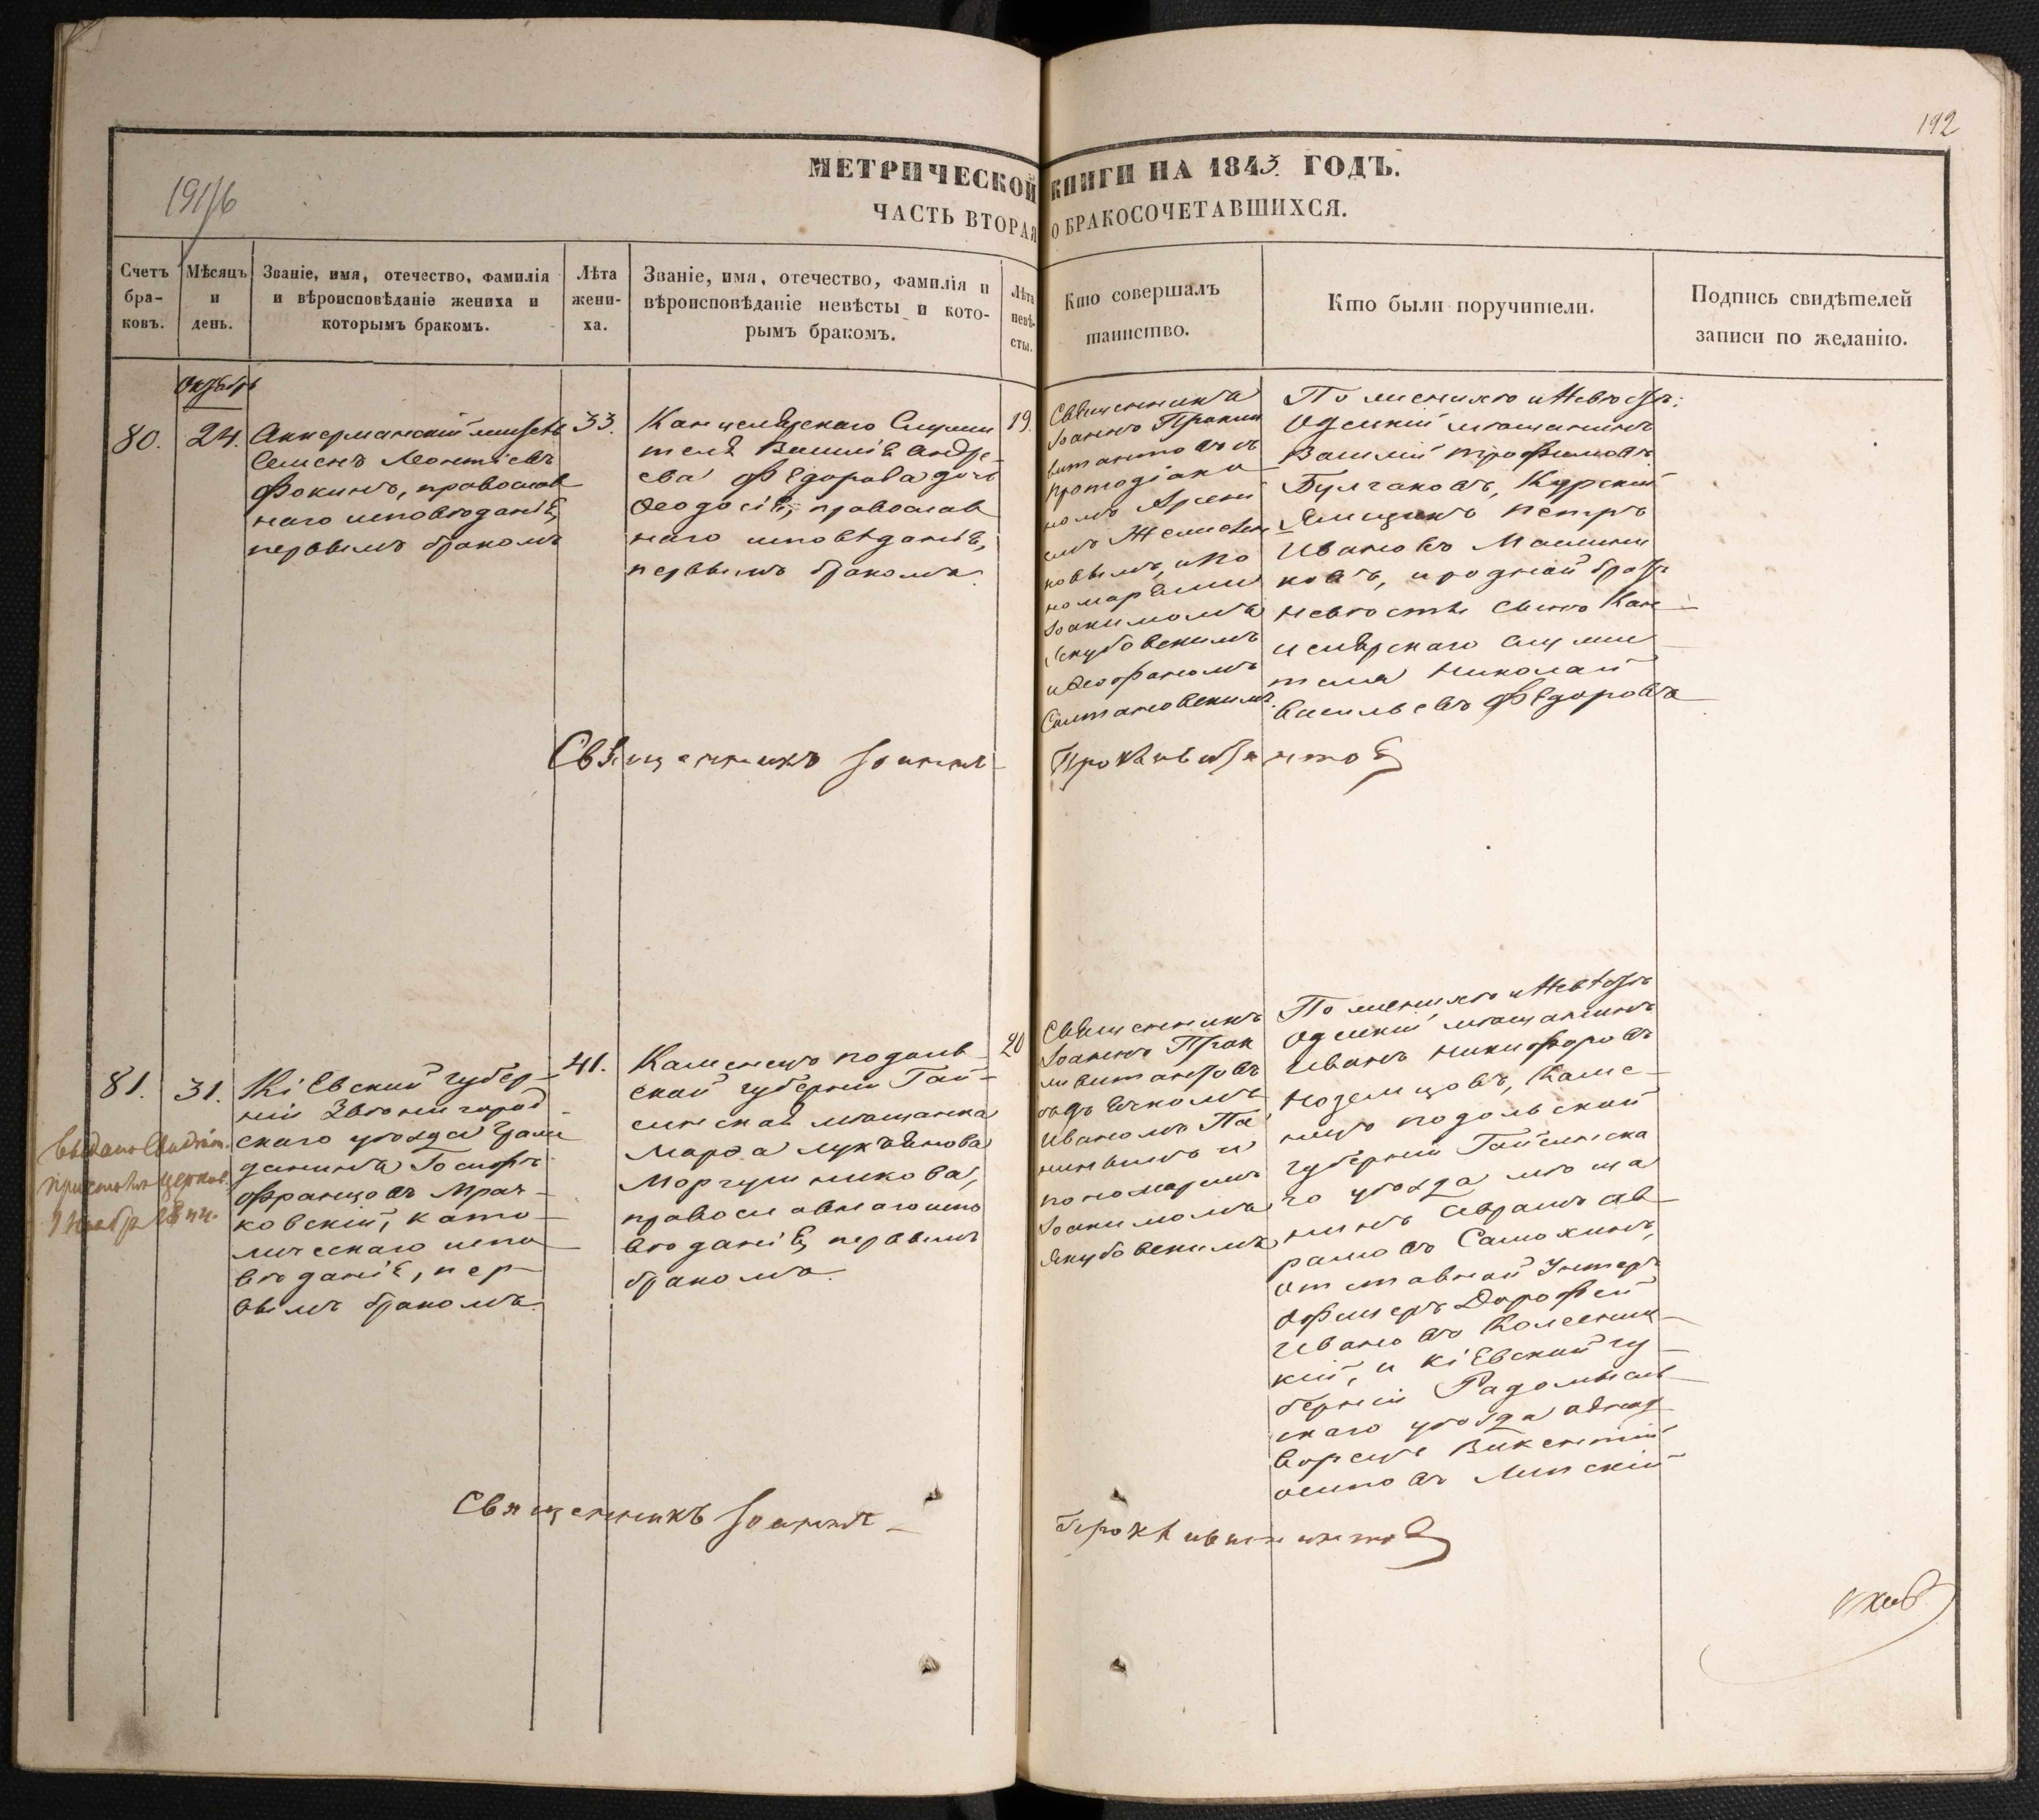 192
191/6
МЕТРИЧЕСКОЙ КНИГИ НА 1843. ГОДЪ.
ЧАСТЬ ВТОРАЯ О БРАКОСОЧЕТАВШИХСЯ.
Счетъ
бра-
ковъ.
Мѣсяцъ
и
день.
Званіе, имя, отечество, фамилія
и вѣроисповѣданіе жениха и
которымъ бракомъ.
Лѣта
жени-
ха.
Званіе, имя, отечество, фамилія и
вѣроисповѣданіе невѣсты и кото-
рымъ бракомъ.
Лѣта
невѣ-
сты.
Кто совершалъ
таинство.
Кто были поручители.
Подпись свидѣтелей
записи по желанію.
Октября
80.
24.
Аккерманскій
Семенъ Леонтіевъ
Фокинъ, православ
наго исповѣданія,
первымъ бракомъ
33.
Канцелярскаго Служи
теля Василія Андре-
ева Федорова дочь
Ѳеодосія, православ
наго исповѣданія,
первымъ бракомъ.
19.
Священникъ
Іоаннъ Прокли
витантовъ съ
протодіако
номъ Арсені
емъ
ковымъ, и по
номарями
Іоакимомъ
Якубовскимъ
и Ѳеофаномъ
Салтановскимъ.
По женихѣ и невѣстѣ:
Одесскій мѣщанинъ
Василій Трофимовъ
Булгаковъ, Курскій
Ямщикъ Петръ
Ивановъ Машни
ковъ, и родной братъ
невѣсты сынъ Кан-
целярскаго служи
теля Николай
Васильевъ Федоровъ
Священникъ Іоаннъ Проклвитантовъ
81.
31.
Кіевской губер-
ніи Звенигород-
скаго уѣзда Граж
данинъ Іосифъ
Францовъ Мрач-
ковскій, като-
лическаго испо-
вѣданія, пер-
вымъ бракомъ.
41.
Каменецъ подоль-
ской губерніи Гай-
синская мѣщанка
Марѳа Лукьянова
Моргулинкова,
православнаго испо
вѣданія, первымъ
бракомъ.
20
Священникъ
Іоаннъ Прок
ливитантовъ
съ дьякономъ
Иваномъ Па
нинымъ и
пономаремъ
Іоакимомъ
Якубовскимъ
По женихѣ и невѣстѣ
Одесскій мѣщанинъ
Иванъ Никифоровъ
Каме-
нецъ подольской
губерніи Гайсинска
го уѣзда мѣща
нинъ Аврамъ Ав-
рамовъ Самохинъ,
отставной Унтеръ
офицеръ Дорофей
Ивановъ Колесниц-
кій, и Кіевской гу-
берніи Радомысль-
скаго уѣзда однод-
ворецъ Викентій
Осиповъ Липскій
Выдано Свидѣт.
1844.
Священникъ Іоаннъ Проклвитантовъ